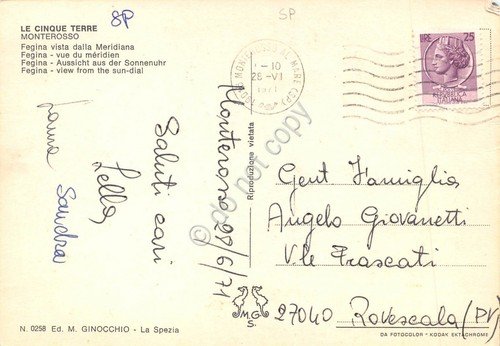 8P
SP
LE CINQUE TERRE
MONTEROSSO
Fegina vista dalla Meridiana
Fegina - vue du méridien
Fegina - Aussicht aus der Sonnenuhr
Fegina - view from the sun-dial
MONTEROSSO AL MARE (SP)
-10
28-VI
1971
LIRE 25
REPUBBLICA
ITALIANA
Monterosso 28/6/71
Saluti cari
Lella
Laura
Sandra
Riproduzione vietata
do not copy
Gent Famiglia
Angelo Giovanetti
Vle Frascati
27040 Rovescala (PV)
M.G.
S.
N. 0258 Ed. M. GINOCCHIO - La Spezia
DA FOTOCOLOR KODAK EKTACHROME